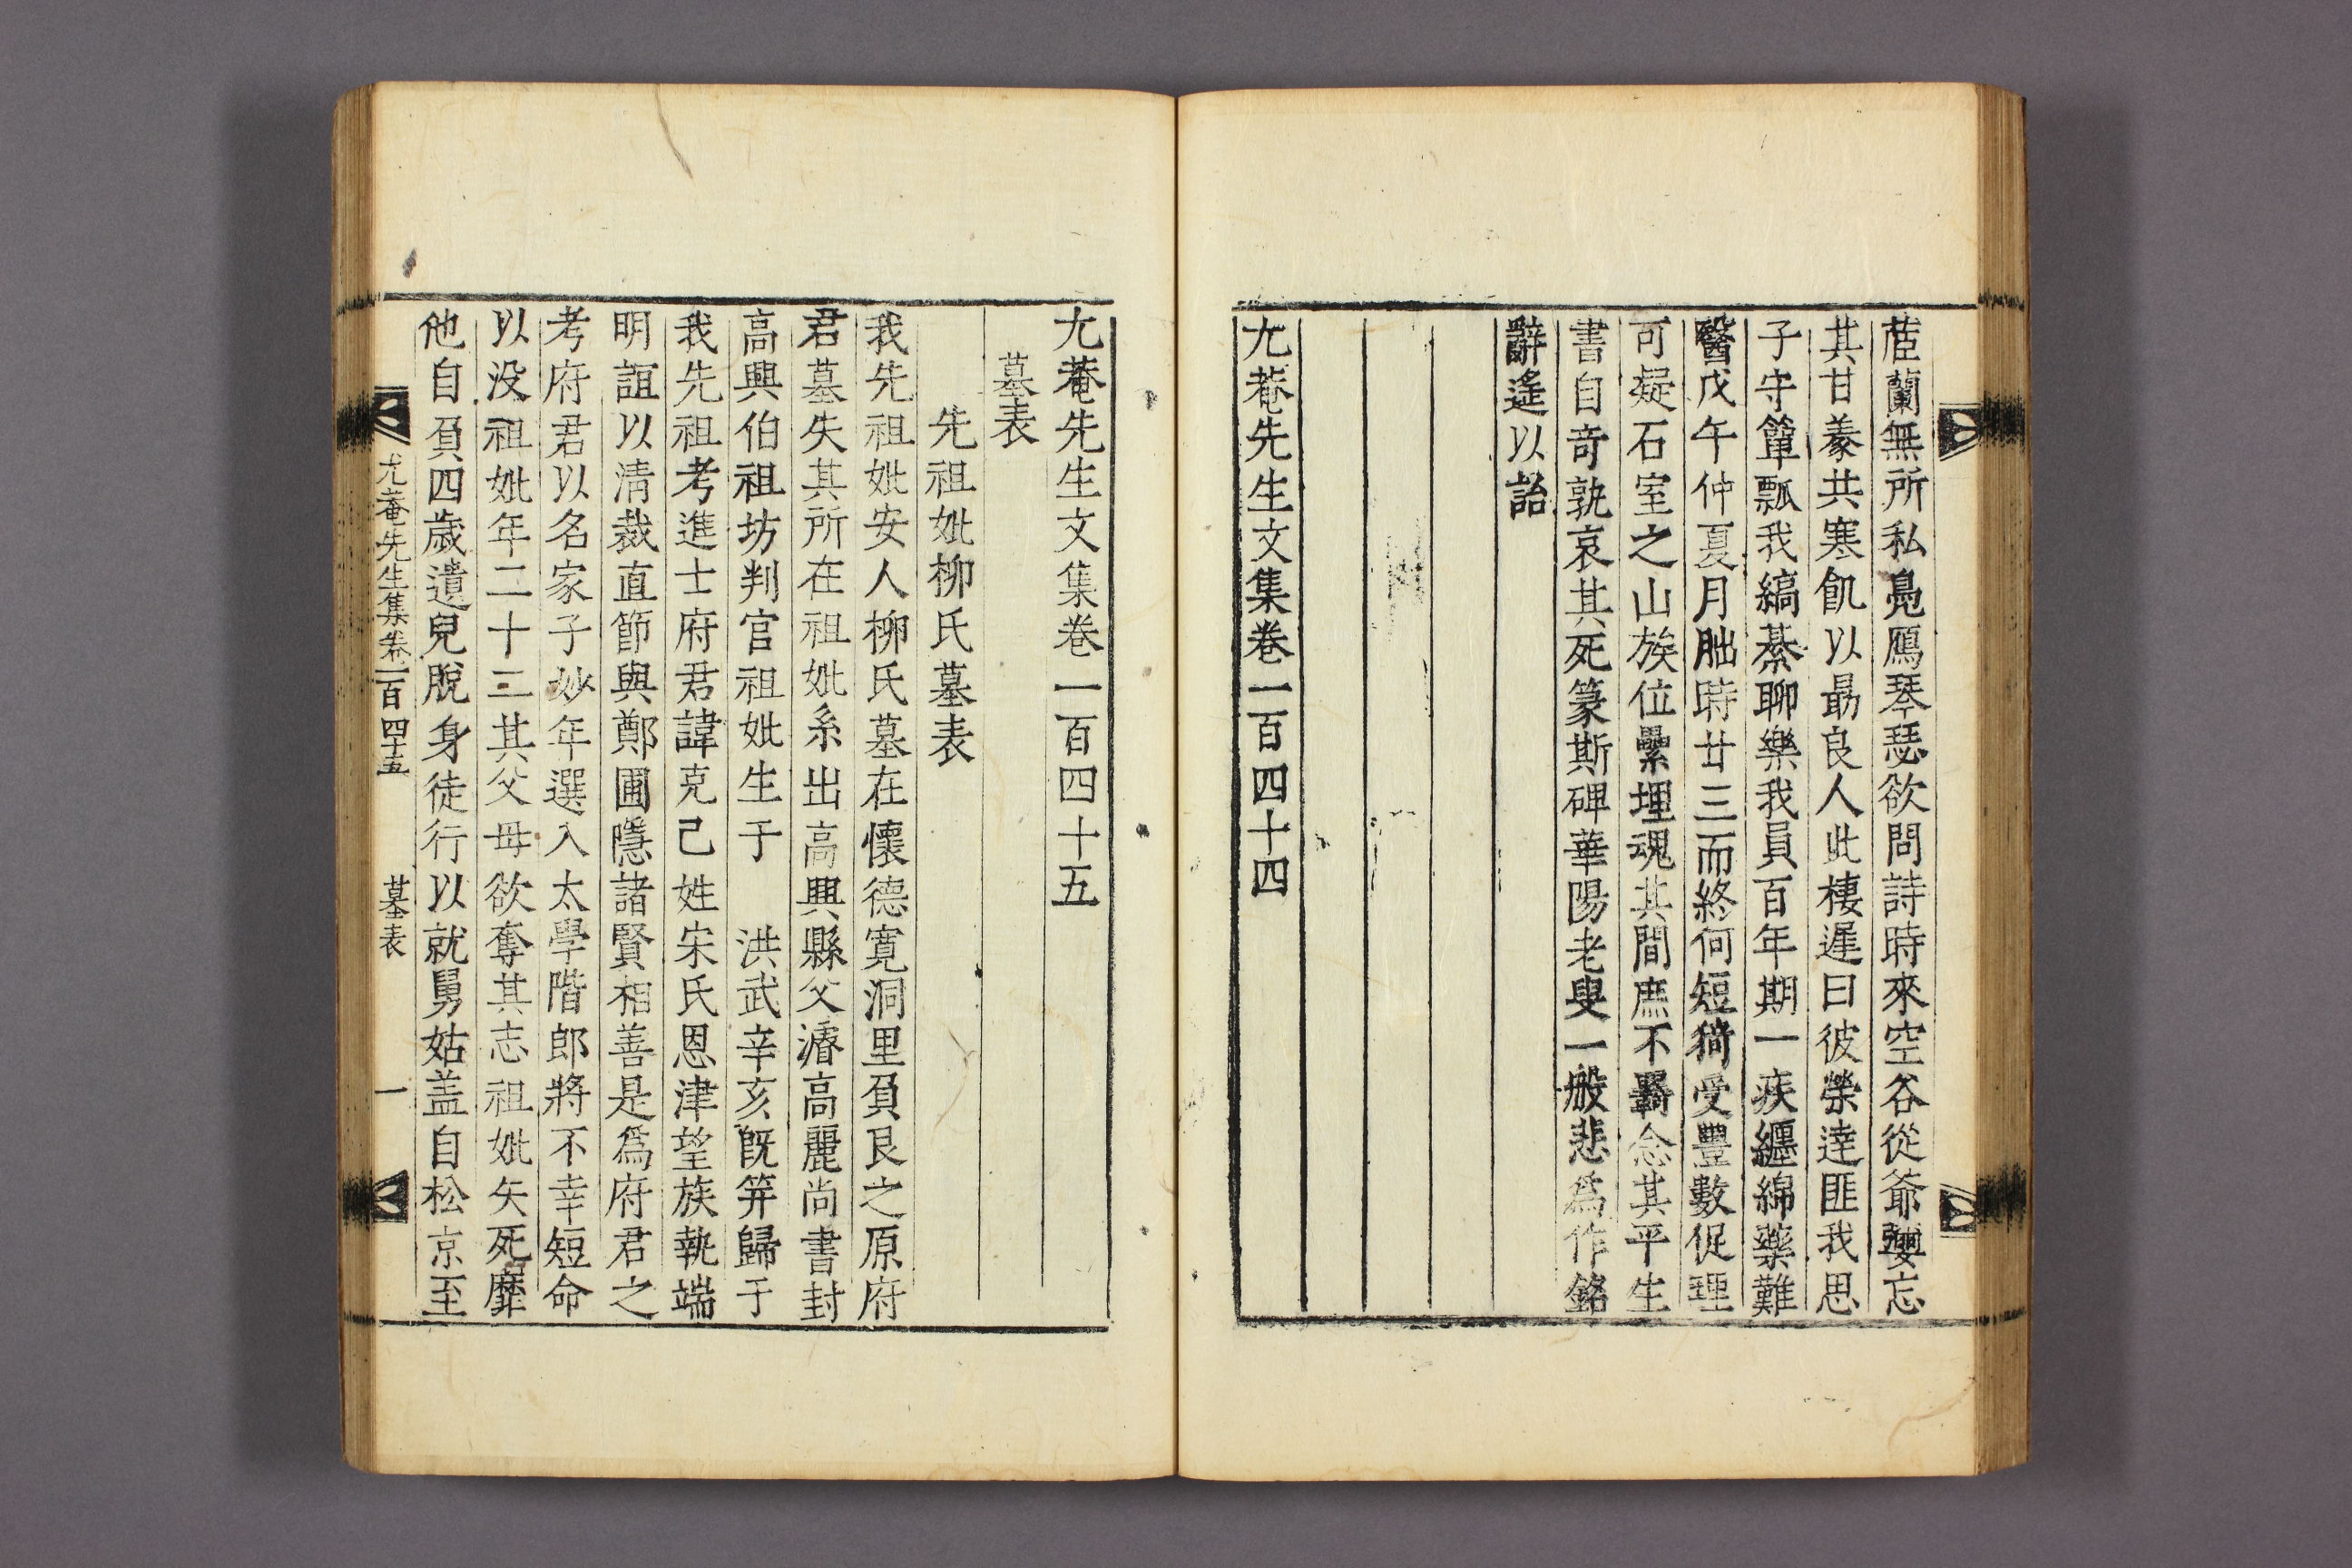 茝蘭無所私鳧鴈琴瑟欲問詩時來空谷從爺孾忘
其甘養共寒飢以勗良人此棲遲曰彼榮達匪我思
子守簞瓢我縞綦聊樂我員百年期一疾纏綿藥難
醫戊午仲夏月朏時廿三而終何短猗受豐數促理
可疑石室之山族位纍埋魂其間庶不羇念其平生
書自奇孰哀其死篆斯碑華陽老叟一般悲爲作銘
辭遙以詒
尤菴先生文集卷一百四十四
尤菴先生文集卷一百四十五
墓表
先祖妣柳氏墓表
我先祖妣安人柳氏墓在懷德寬洞里負艮之原府
君墓失其所在祖妣系出高興縣父濬高麗尚書封
高興伯祖坊判官祖妣生于 洪武辛亥旣筓歸于
我先祖考進士府君諱克己姓宋氏恩津望族執端
明誼以淸裁直節與鄭圃隱諸賢相善是爲府君之
考府君以名家子妙年選入太學階郎將不幸短命
以没祖妣年二十三其父母欲奪其志祖妣矢死靡
他自負四歲遺兒脫身徒行以就舅姑盖自松京至
尤菴先生集卷一百四十五 墓表 一